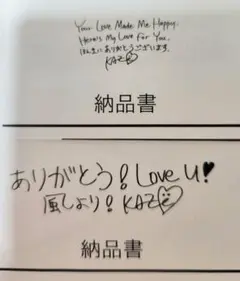 Your Love Made Me Happy.
Here's My Love For You.
ほんまにありがとうございます。
KAZ
納品書
ありがとう！Love U!
風しょり！KAZ
納品書